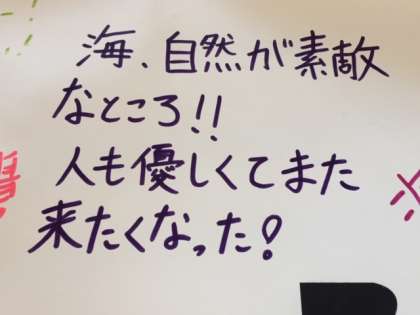 海、自然が素敵
なところ!!
人も優しくてまた
来たくなった!